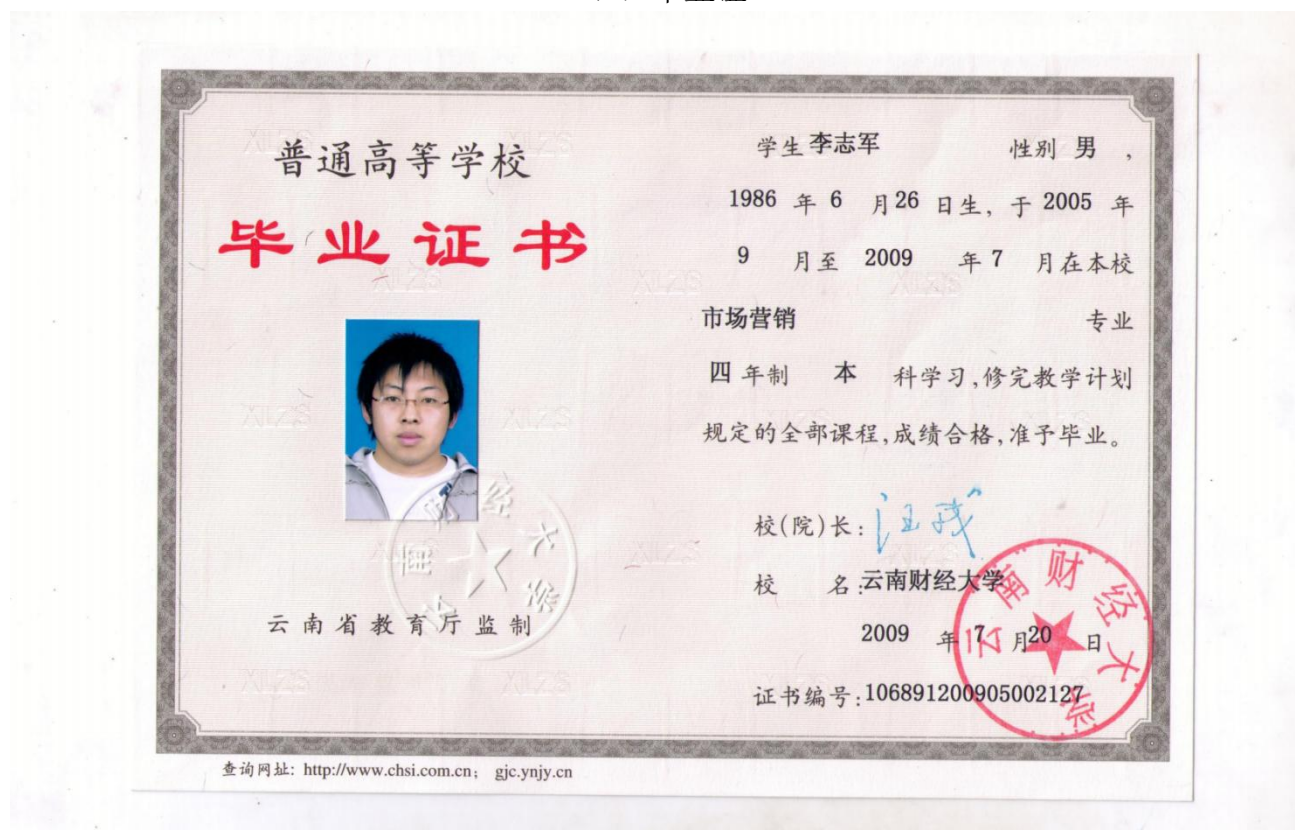 普通高等学校
毕业证书
云南省教育厅监制
学生 李志军 性别 男 ,
1986 年 6 月 26 日生, 于 2005 年
9 月至 2009 年 7 月在本校
市场营销 专业
四 年制 本 科学习,修完教学计划
规定的全部课程,成绩合格,准予毕业。
校(院)长: 汪戎
校 名: 云南财经大学
2009 年 7 月 20 日
证书编号: 106891200905002127
云南财经大学
云南财经大学
查询网址: http://www.chsi.com.cn; gjc.ynjy.cn
XLZS